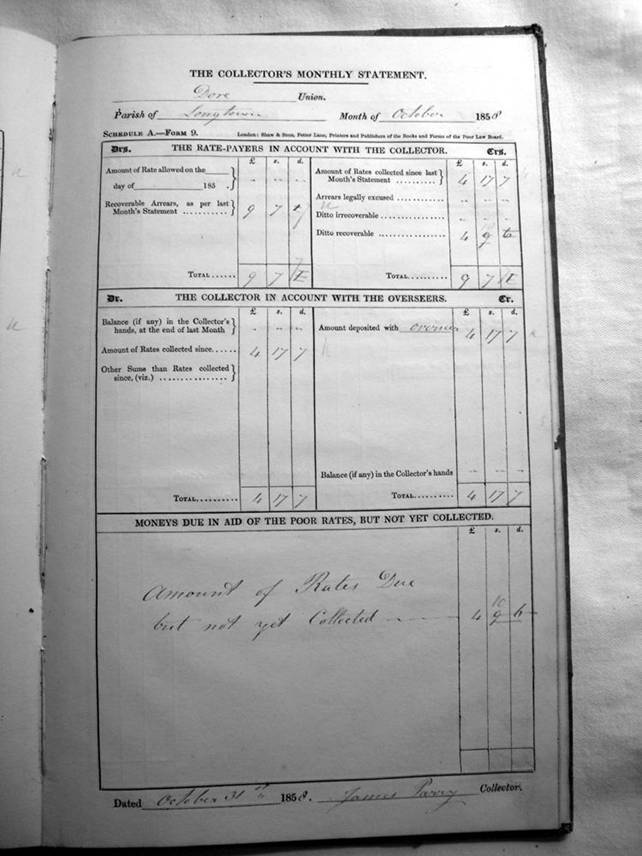 THE COLLECTOR'S MONTHLY STATEMENT.
Dore Union.
Parish of Longtown Month of October 1858
SCHEDULE A.—FORM 9. London: Shaw & Sons, Fetter Lane, Printers and Publishers of the Books and Forms of the Poor Law Board.
Drs. THE RATE-PAYERS IN ACCOUNT WITH THE COLLECTOR. Crs.
£ s. d. £ s. d.
Amount of Rate allowed on the
day of 185 .
Recoverable Arrears, as per last
Month's Statement .......... 9 7
TOTAL ...... 9 7
Amount of Rates collected since last
Month's Statement .......... 4 17 7
Arrears legally excused ............
Ditto irrecoverable ................
Ditto recoverable .................. 4 9
TOTAL ........... 9 7
Dr. THE COLLECTOR IN ACCOUNT WITH THE OVERSEERS. Cr.
£ s. d. £ s. d.
Balance (if any) in the Collector's
hands, at the end of last Month
Amount of Rates collected since..... 4 17 7
Other Sums than Rates collected
since, (viz.) ..................
TOTAL .......... 4 17 7
Amount deposited with 4 17 7
Balance (if any) in the Collector's hands
TOTAL .......... 4 17 7
MONEYS DUE IN AID OF THE POOR RATES, BUT NOT YET COLLECTED.
£ s. d.
Amount of Rates Due
10
but not yet Collected 4 9
Dated October 31st 1858. James Parry Collector.